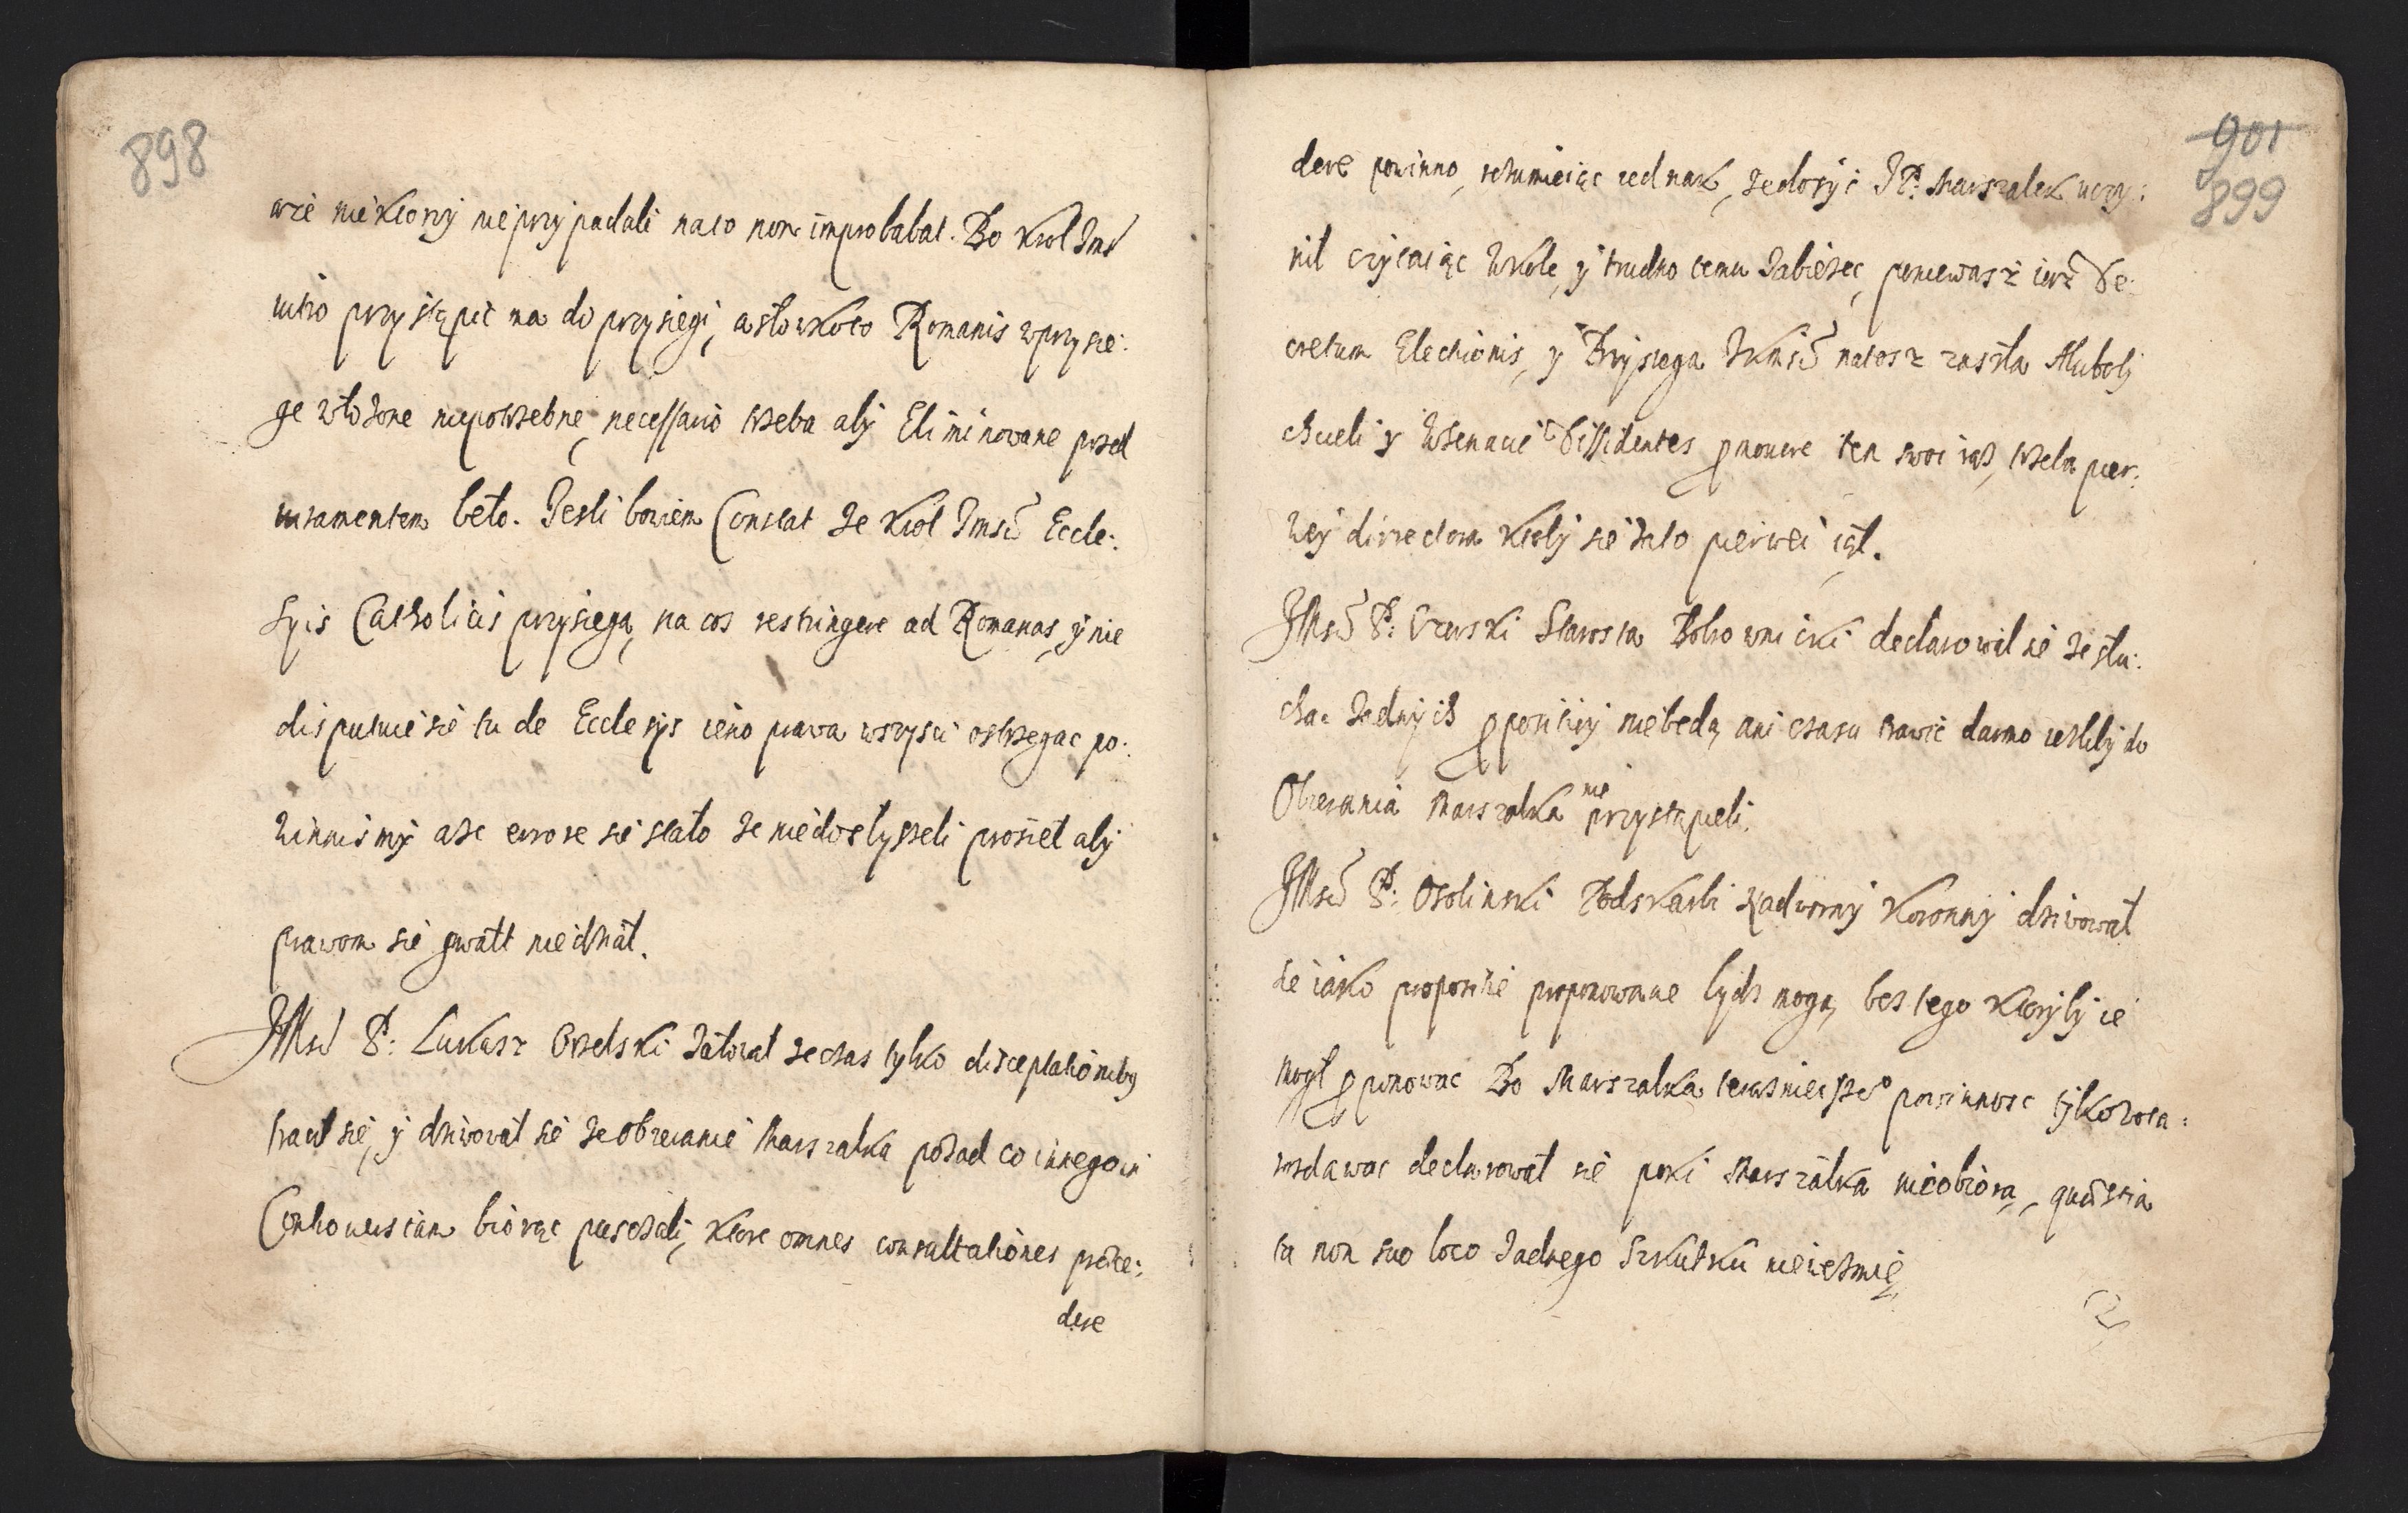 898
wie niektorzy nieprzypadali nato non improbabat. Bo Krol Jmsć
iutro przystąpić ma do przysiegi, a słowkoto Romanis wprzysie:
ge włozone niepotrzebne, necessario trzeba aby Eliminowane przed
iuramentem beło. Jesli bowiem Constat ze Krol Jmsć Eccle:
syis Catholicis przysięga, na cos restringere ad Romanas, y nie
disputuie sie tu de Ecclesys ieno prawa wszysci ostrzegac po:
winnismy a ze errore sie stało ze niedosłyszeli prosieł aby
prawom sie gwałt niedział.
JMsć P: Lukasz Opelski załował ze czas tylko disceptationiby
trawi sie, y dziwował sie ze obieranie Marszalka pozad co innego in
Controuersiam biorąc puscżali, ktore omnes consultationes præce:
dere
901
899
dere powinno, rozumieiąc iednak, ze dosyć JP: Marszalek uczy:
nił czytaiąc Wkole, y trudno temu zabiezec, poniewasz iusz De:
cretum Electionis, y Przysiega JKmsci natosz zaszła Aluboby
chcieli y Wsenacie Dissidentes promouere ten swoi iąs, trzeba pier:
wey directora ktoby sie zato pierwei iął.
JMsć P: Starosta declarowal sie ze słu:
chac zadnych propositiy niebedą ani czasu trawic darmo iesliby do
Obierania Marszalka nie przystąpieli.
JMsć P: Osolinski Podskarbi Nadworny Koronny dziwował
sie iako propositie proponowane bydz mogą, bez tego ktoryby ie
mogł proponowac Bo Marszalka terazniejszego powinnosc tylko wota:
rozdawac declarował sie poki Marszalka nieobiorą, quæstia
ta non suo loco zadnego Szkutku niewezmię